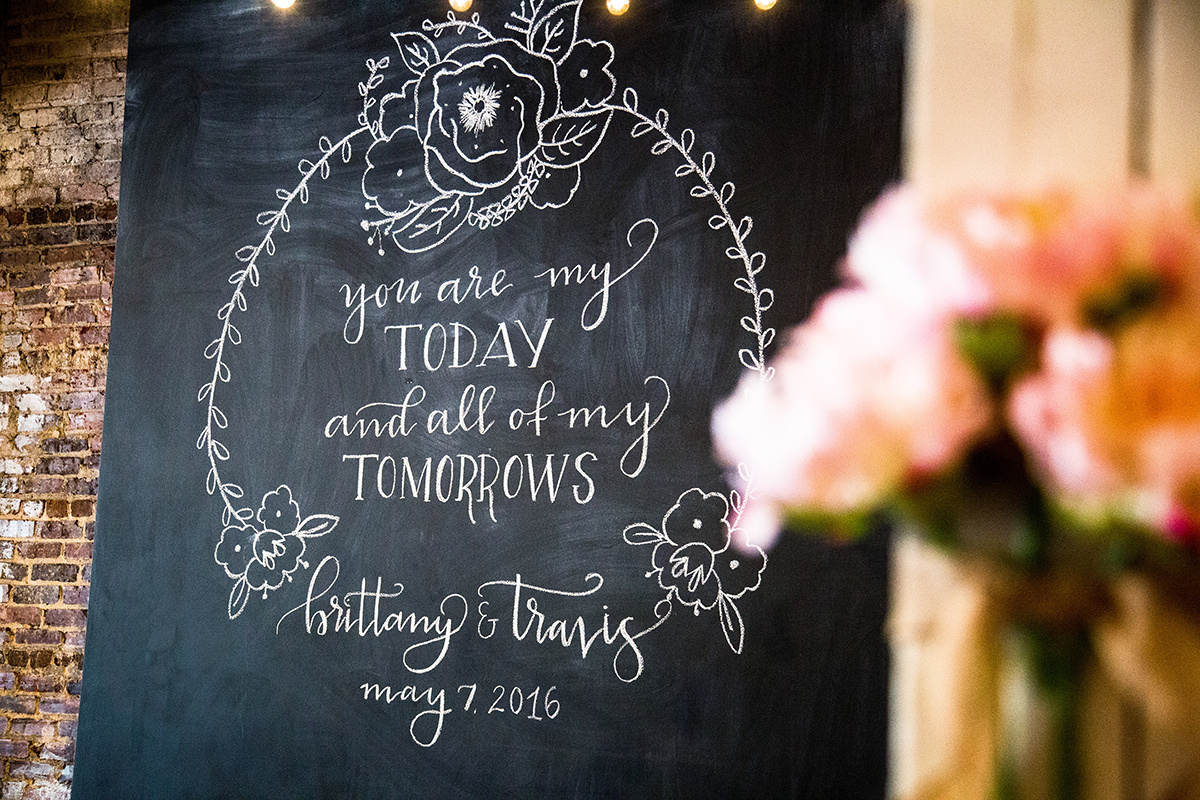 you are my
TODAY
and all of my
TOMORROWS
brittany & travis
may 7. 2016